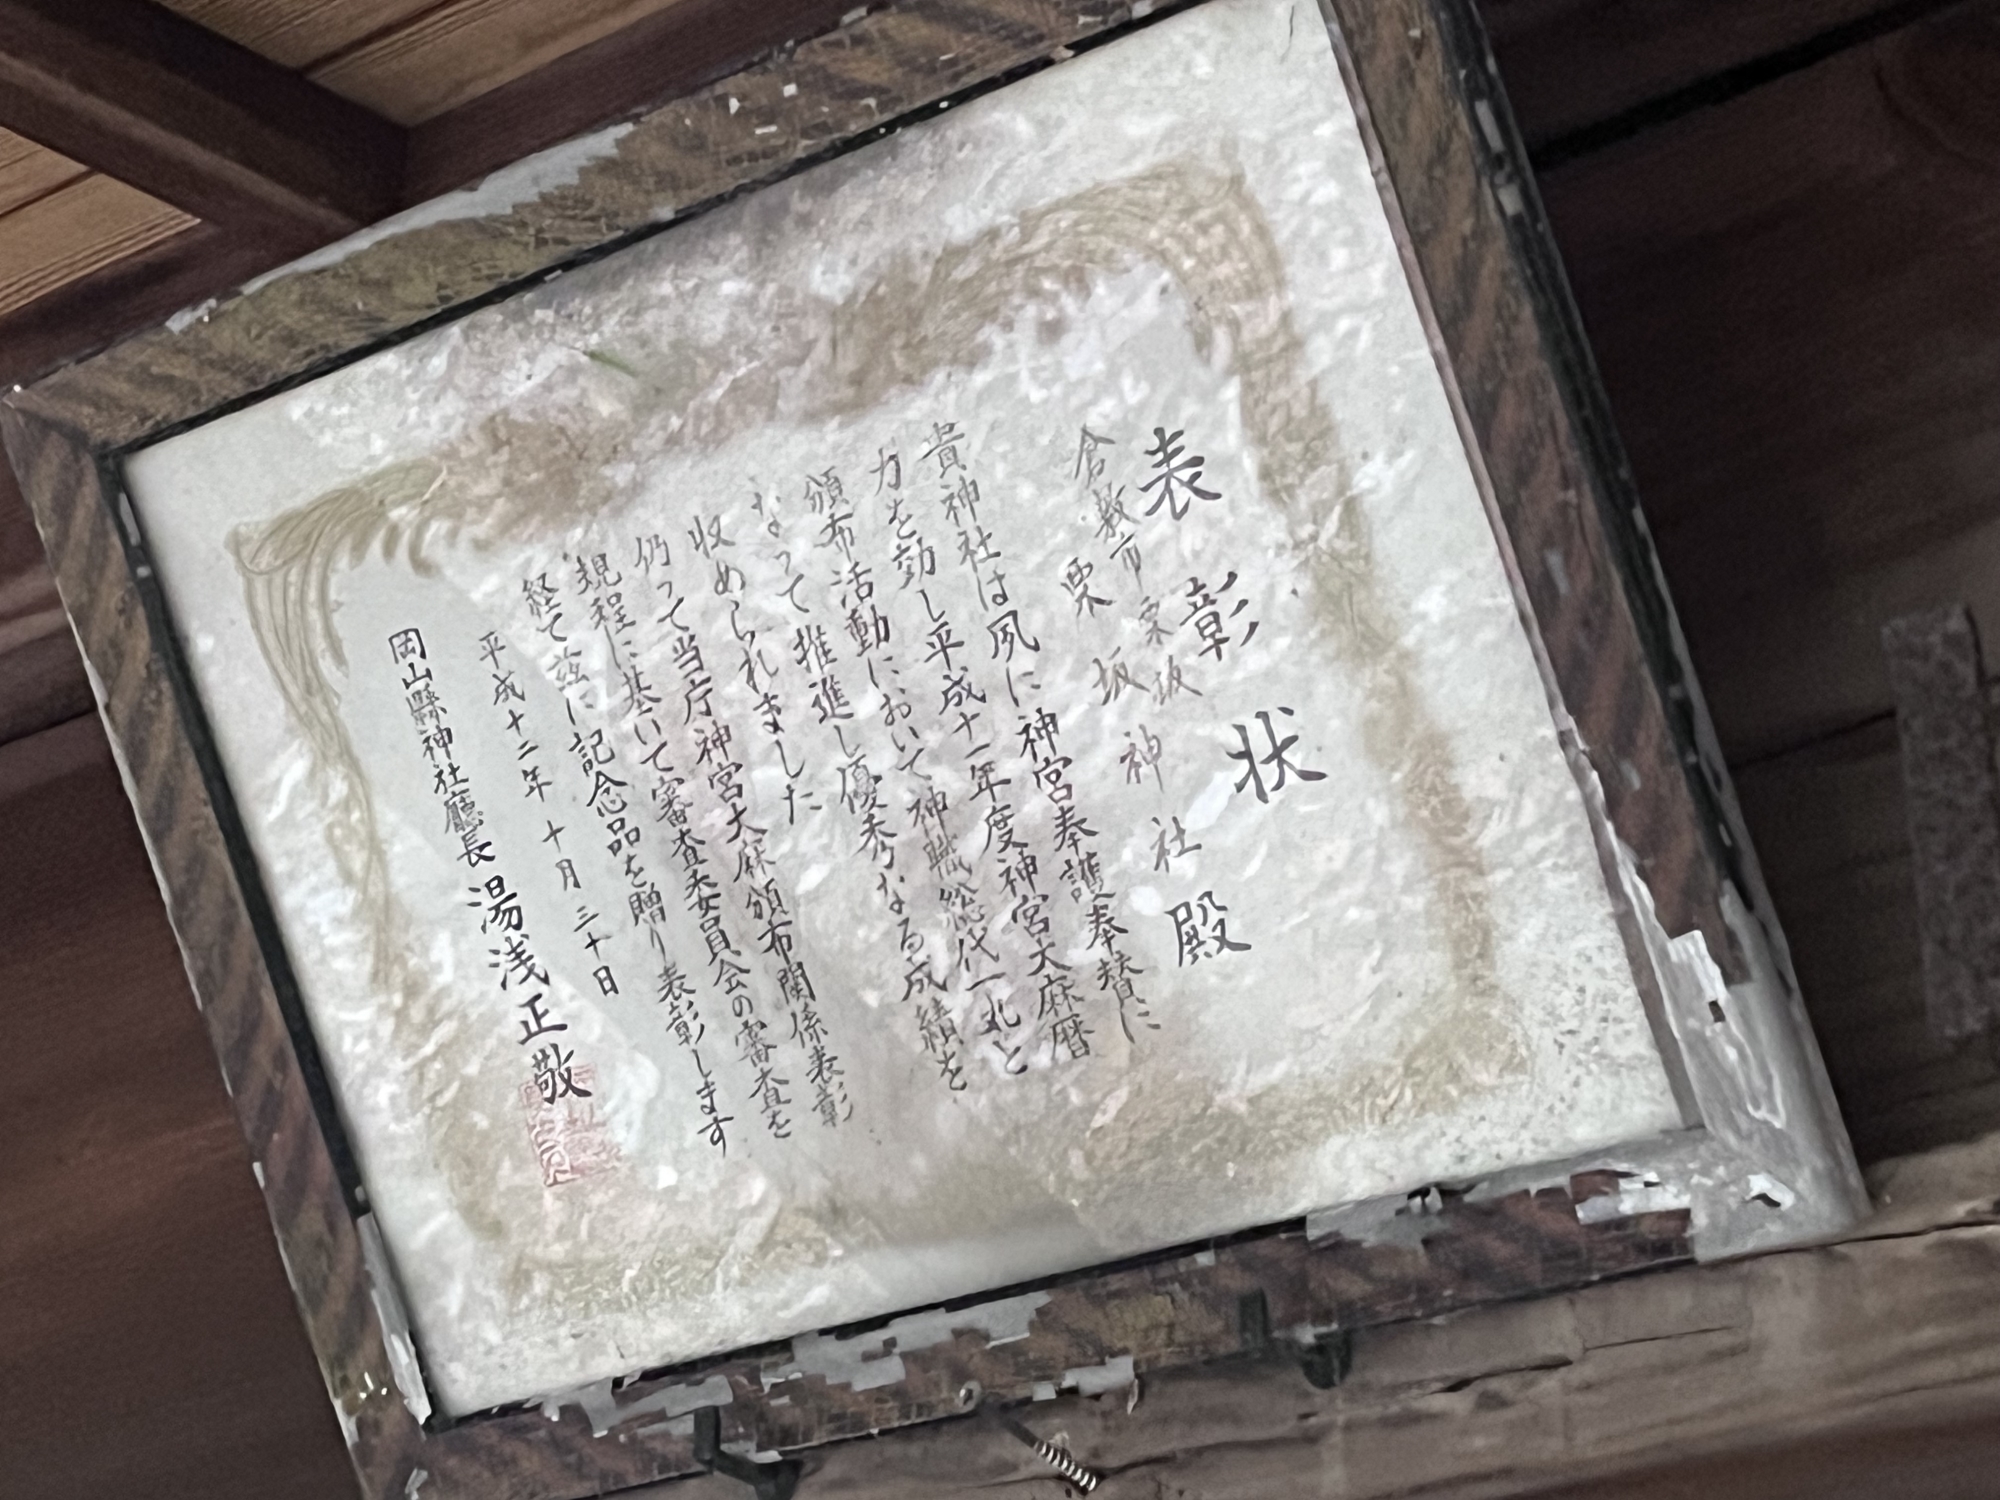 表彰状
倉敷市栗坂
栗坂神社殿
貴神社は夙に神宮奉護奉賛に
力を効し平成十一年度神宮大麻暦
頒布活動において神職総代一丸と
なって推進し優秀なる成績を
収められました
仍って当庁神宮大麻頒布関係表彰
規程に基いて審査委員会の審査を
経て茲に記念品を贈り表彰します
平成十二年十月三十日
岡山縣神社廳長湯浅正敬